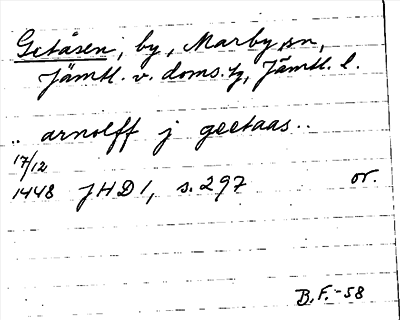 Getåsen, by, Marby sn,
Jämtl. v. doms. h, Jämtl. l.
.. arnolff j geetaas ..
17/12
1448 JHD 1, s. 297 or.
B. F. -58